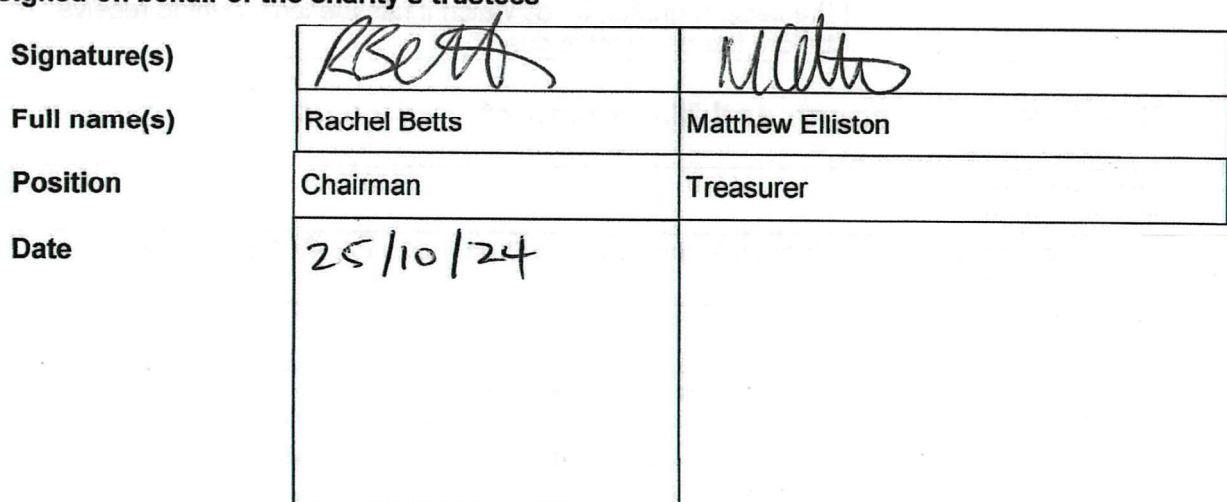 Signed on behalf of the charity's trustees
Signature(s) RBetts
Full name(s) Rachel Betts Matthew Elliston
Position Chairman Treasurer
Date 25/10/24